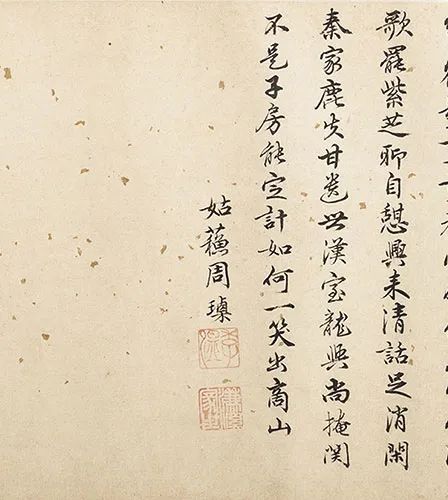 歌罷紫芝聊自憇興来清話足消閑
秦家鹿失甘遯世漢室龍興尚掩関
不是子房能定計如何一笑出商山
姑蘓周